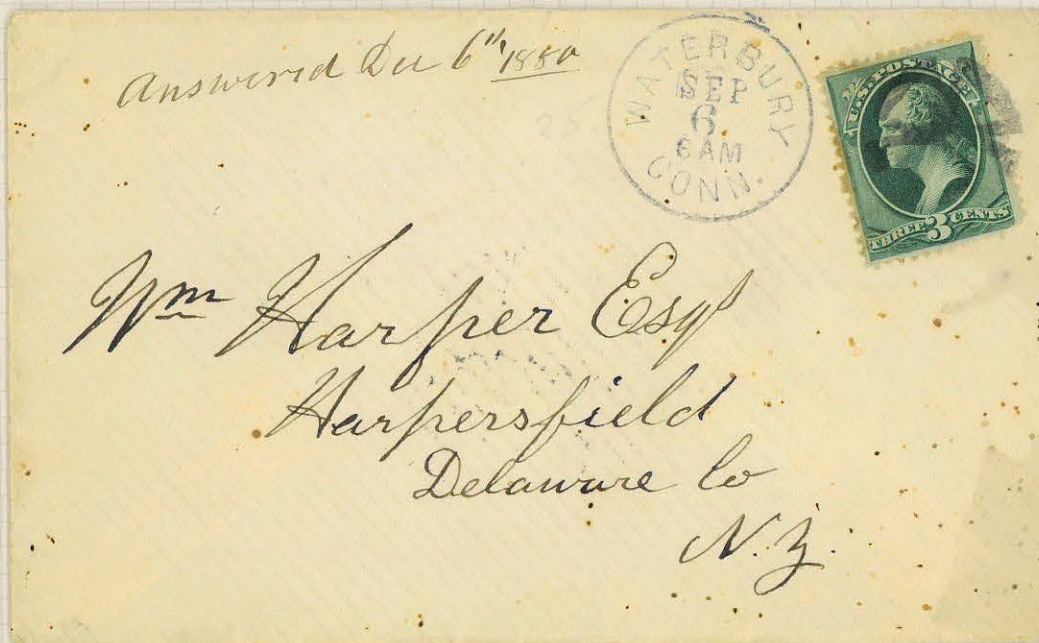 Answered Dec 6th 1880
WATERBURY
SEP
6
6 AM
CONN.
U.S. POSTAGE
THREE 3 CENTS
Wm Harper Esqr
Harpersfield
Delaware Co
N.Y.